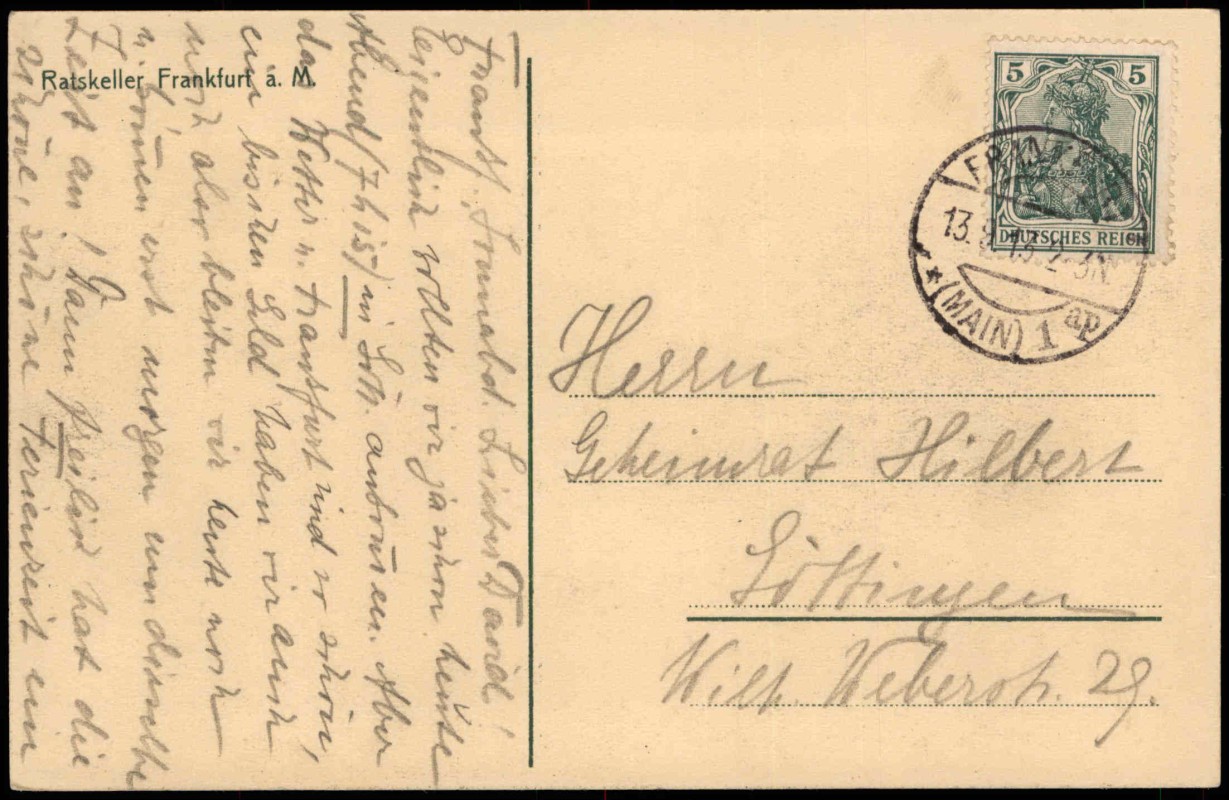 Ratskeller Frankfurt a. M.
Frankf. Sonnabd. Lieber David!
Eigentlich wollten wir ja schon heute
Abend (7h15) in Gött. ankommen. Aber
das Wetter u. Frankfurt sind so schön,
ein bisschen Geld haben wir auch
noch also bleiben wir heute noch
u. kommen erst morgen um dieselbe
Zeit an! Dann freilich hat die
schöne, schöne Ferienzeit ein
5 5
DEUTSCHES REICH
FRANKFURT
(MAIN) 1 ap
Herrn
Geheimrat Hilbert
Göttingen
Wilh. Weberstr. 29.